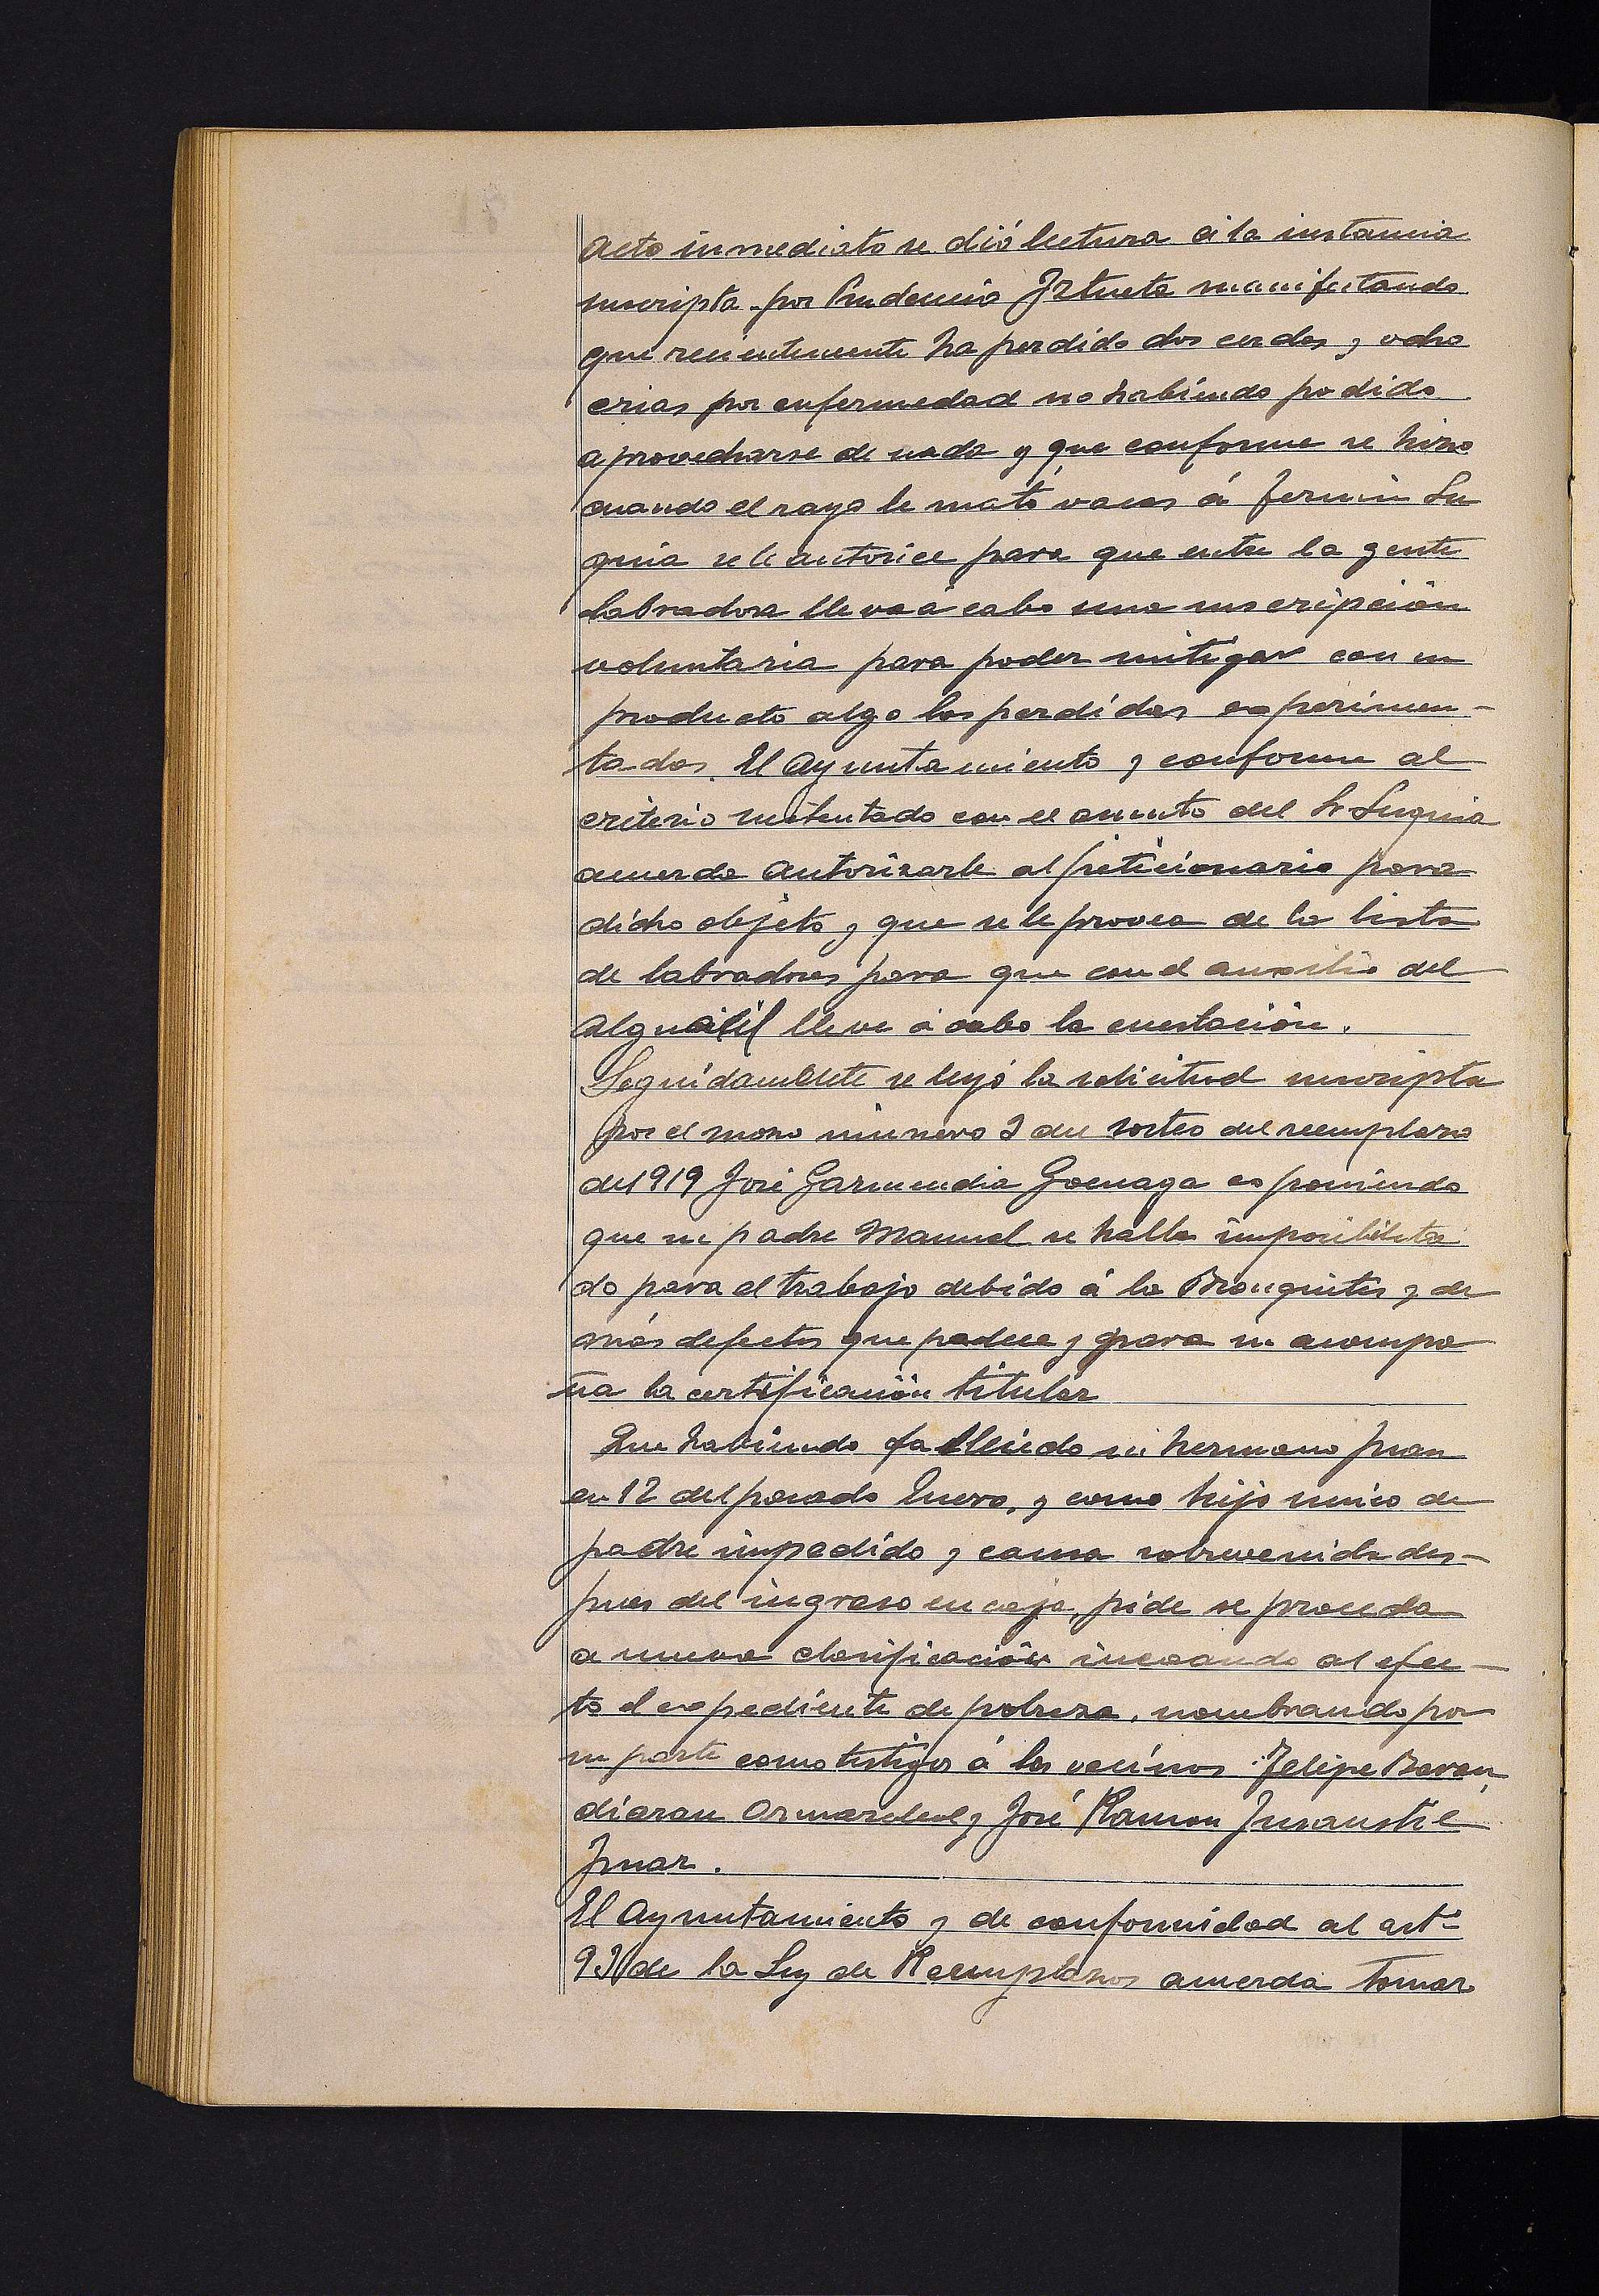 Acto inmediato se dió lectura á la instancia
suscripta por Prudencio Iztueta manifestando
que recientemente ha perdido dos cerdas y ocho
crias por enfermedad no habiendo podido
aprovecharse de nada y que conforme se hizo
cuando el rayo le mató vacas á Fermin Su
quia se le autorice para que entre la gente
labradora lleve á cabo una suscripción
voluntaria para poder mitigar con su
producto algo las perdidas experimen-
tadas. El Ayuntamiento y conforme al
criterio sustentado con el asunto del Sr Suquia
acuerda autorizarle al peticionario para
dicho objeto y que se le provea de la lista
de labradores para que con el auxilio del
Alguacil lleve á cabo la cuestación.
Seguidamente se leyó la solicitud suscripta
por el mozo número 2 del sorteo del reemplazo
de 1919 José Garmendia Goenaga exponiendo
que su padre Manuel se halla imposibilita
do para el trabajo debido á la Bronquitis y de
más defectos que padece y para su acompa
ña la certificación titular
Que habiendo fallecido su hermano Juan
en 12 del pasado Enero, y como hijo unico de
padre impedido y causa sobrevenida des-
pues del ingreso en caja, pide se proceda
a nueva clasificación incoando al efec-
to el expediente de pobreza, nombrando por
su parte como testigos á los vecinos Felipe Baran
diaran Ormazabal y José Ramon Insausti é
Imaz.
El Ayuntamiento y de conformidad al artº
93 de la Ley de Reemplazos acuerda tomar